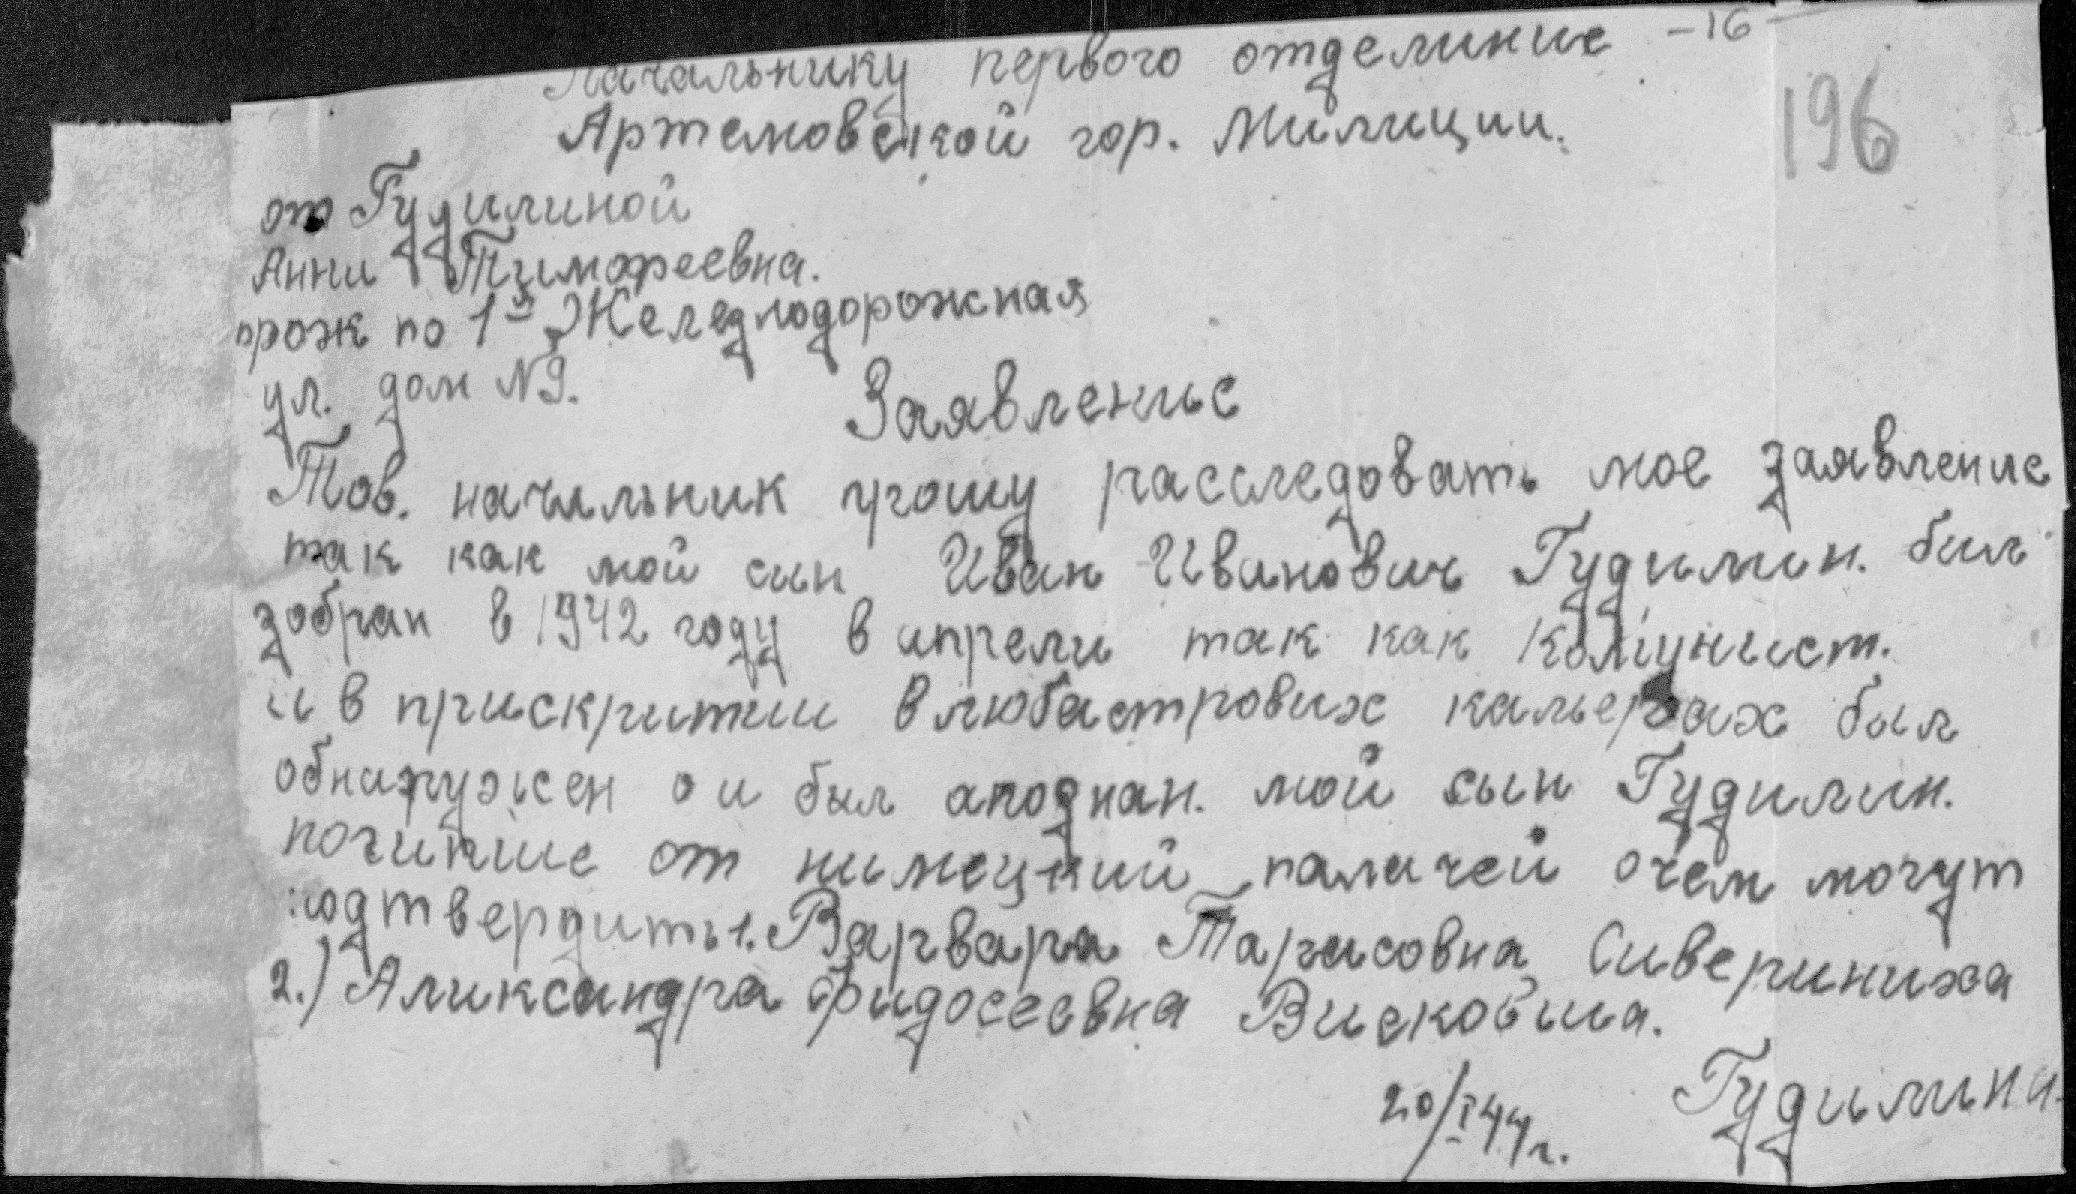 Начальнику первого отделиние -16-
196
Артемовской гор. Милиции.
от Гудилиной
Анни Тимофеевна.
прож по 1я Железнодорожная
ул. дом №9.
Заявление
Тов. начальник прошу расследовать мое заявление
так как мой син Иван Иванович Гудилин. бил
зобран в 1942 году в апрели так как комунист.
и в прискритии в люббастрових карьерах был
обнаружен о и был апознан. мой сын Гудилин.
погипшие от нимецкий палачей очем могут
подтвердить 1. Варвара Тарисовна Сивериниха
2.) Аликсандра Фидосеевна
20/I 44г. Гудилина.